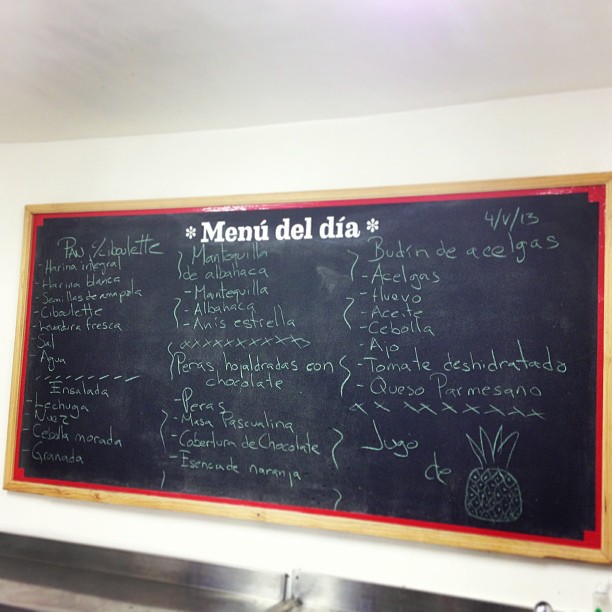 * Menú del día *
4/V/13
Pan c/Ciboulette
- Harina integral
- Harina blanca
- Semillas de amapola
- Ciboulette
- Levadura fresca
- Sal
- Agua
Ensalada
- Lechuga
- Nuez
- Cebolla morada
- Granada
Mantequilla
de albahaca
- Mantequilla
- Albahaca
- Anís estrella
xxxxxxxxxxx
Peras hojaldradas con
chocolate
- Peras
- Masa Pascualina
- Cobertura de Chocolate
- Esencia de naranja
Budín de acelgas
- Acelgas
- Huevo
- Aceite
- Cebolla
- Ajo
- Tomate deshidratado
- Queso Parmesano
x x x x x x x x x
Jugo
de